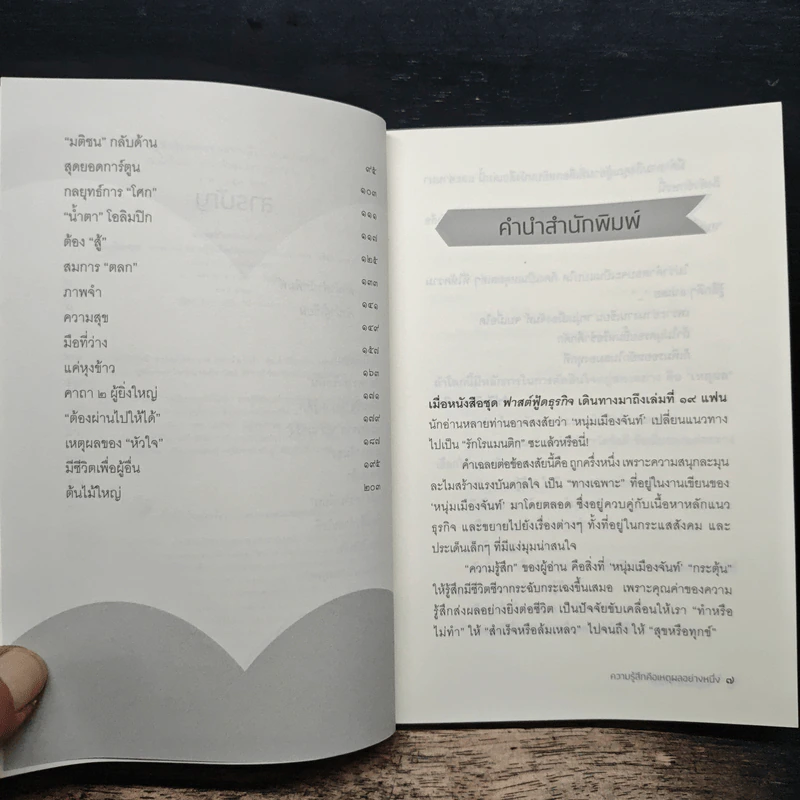 "มติชน" กลับด้าน
สุดยอดการ์ตูน ๙๕
กลยุทธ์การ "โศก" ๑๐๓
"น้ำตา" โอลิมปิก ๑๑๑
ต้อง "สู้" ๑๑๗
สมการ "ตลก" ๑๒๕
ภาพจำ ๑๓๓
ความสุข ๑๔๑
มือที่ว่าง ๑๔๙
แค่หุงข้าว ๑๕๗
คาถา ๒ ผู้ยิ่งใหญ่ ๑๖๓
"ต้องผ่านไปให้ได้" ๑๗๑
เหตุผลของ "หัวใจ" ๑๗๙
มีชีวิตเพื่อผู้อื่น ๑๘๗
ต้นไม้ใหญ่ ๑๙๕
๒๐๓
คำนำสำนักพิมพ์
เมื่อหนังสือชุด ฟาสต์ฟู้ดธุรกิจ เดินทางมาถึงเล่มที่ ๑๙ แฟน
นักอ่านหลายท่านอาจสงสัยว่า 'หนุ่มเมืองจันท์' เปลี่ยนแนวทาง
ไปเป็น "รักโรแมนติก" ซะแล้วหรือนี่!
คำเฉลยต่อข้อสงสัยนี้คือ ถูกครึ่งหนึ่ง เพราะความสนุกละมุน
ละไมสร้างแรงบันดาลใจ เป็น "ทางเฉพาะ" ที่อยู่ในงานเขียนของ
'หนุ่มเมืองจันท์' มาโดยตลอด ซึ่งอยู่ควบคู่กับเนื้อหาหลักแนว
ธุรกิจ และขยายไปยังเรื่องต่างๆ ทั้งที่อยู่ในกระแสสังคม และ
ประเด็นเล็กๆ ที่มีแง่มุมน่าสนใจ
"ความรู้สึก" ของผู้อ่าน คือสิ่งที่ 'หนุ่มเมืองจันท์' "กระตุ้น"
ให้รู้สึกมีชีวิตชีวากระฉับกระเฉงขึ้นเสมอ เพราะคุณค่าของความ
รู้สึกส่งผลอย่างยิ่งต่อชีวิต เป็นปัจจัยขับเคลื่อนให้เรา "ทำหรือ
ไม่ทำ" ให้ "สำเร็จหรือล้มเหลว" ไปจนถึง ให้ "สุขหรือทุกข์"
ความรู้สึกคือเหตุผลอย่างหนึ่ง ๗